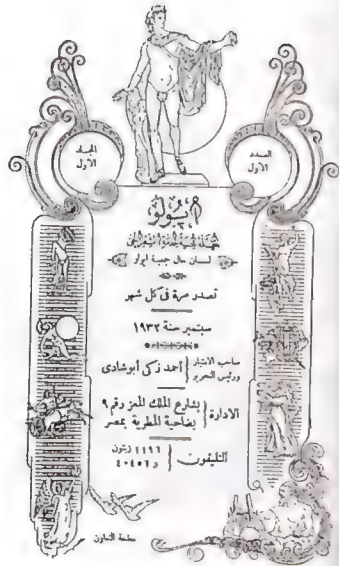 المجلد
الأول
العدد
الأول
أپولو
لسان حال جمعية أبولو
تصدر مرة في كل شهر
سبتمبر سنة ١٩٣٢
صاحب الامتياز
ورئيس التحرير
أحمد زكى أبو شادى
الادارة
بشارع الملك المعز رقم ٩
بضاحية المطرية بمصر
التليفون
١١٩٦ زيتون
و ٤٠٤٥٦
مطبعة التعاون